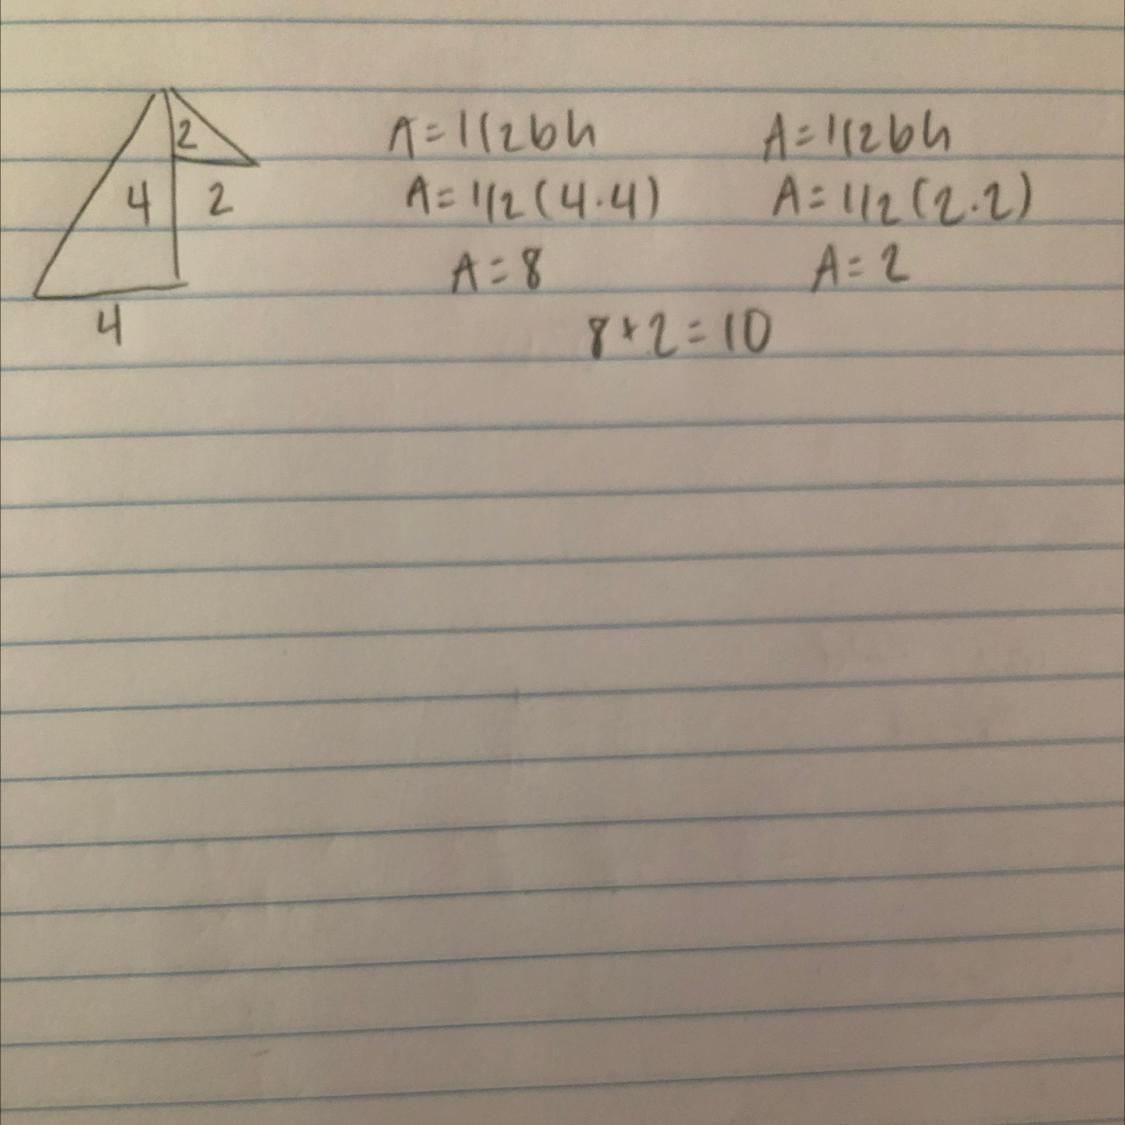 2
4 2
4
A=1/2bh
A=1/2(4·4)
A=8
A=1/2bh
A=1/2(2·2)
A=2
8+2=10